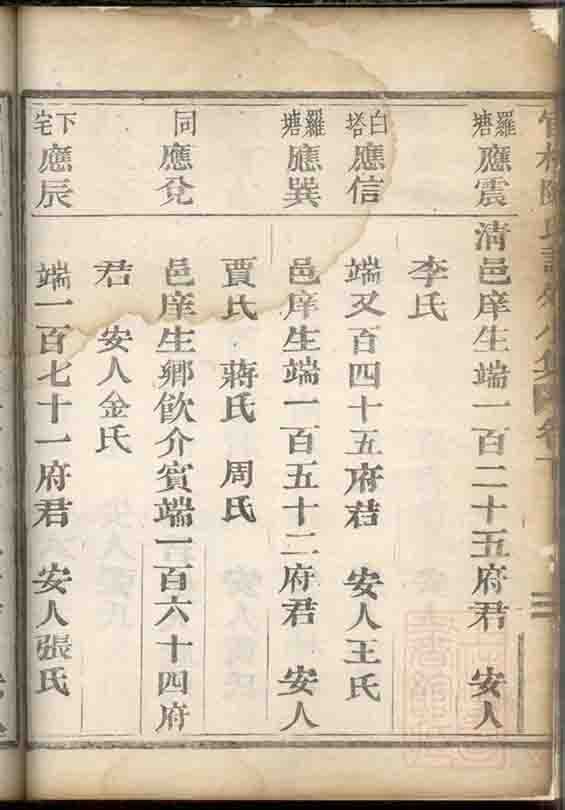 羅塘應震
清邑庠生端一百二十五府君 安人
李氏
白塔應信
端又百四十五府君 安人王氏
羅塘應巽
邑庠生端一百五十二府君 安人
賈氏 蔣氏 周氏
同應兌
邑庠生鄉飲介賓端一百六十四府
君 安人金氏
下宅應辰
端一百七十一府君 安人張氏